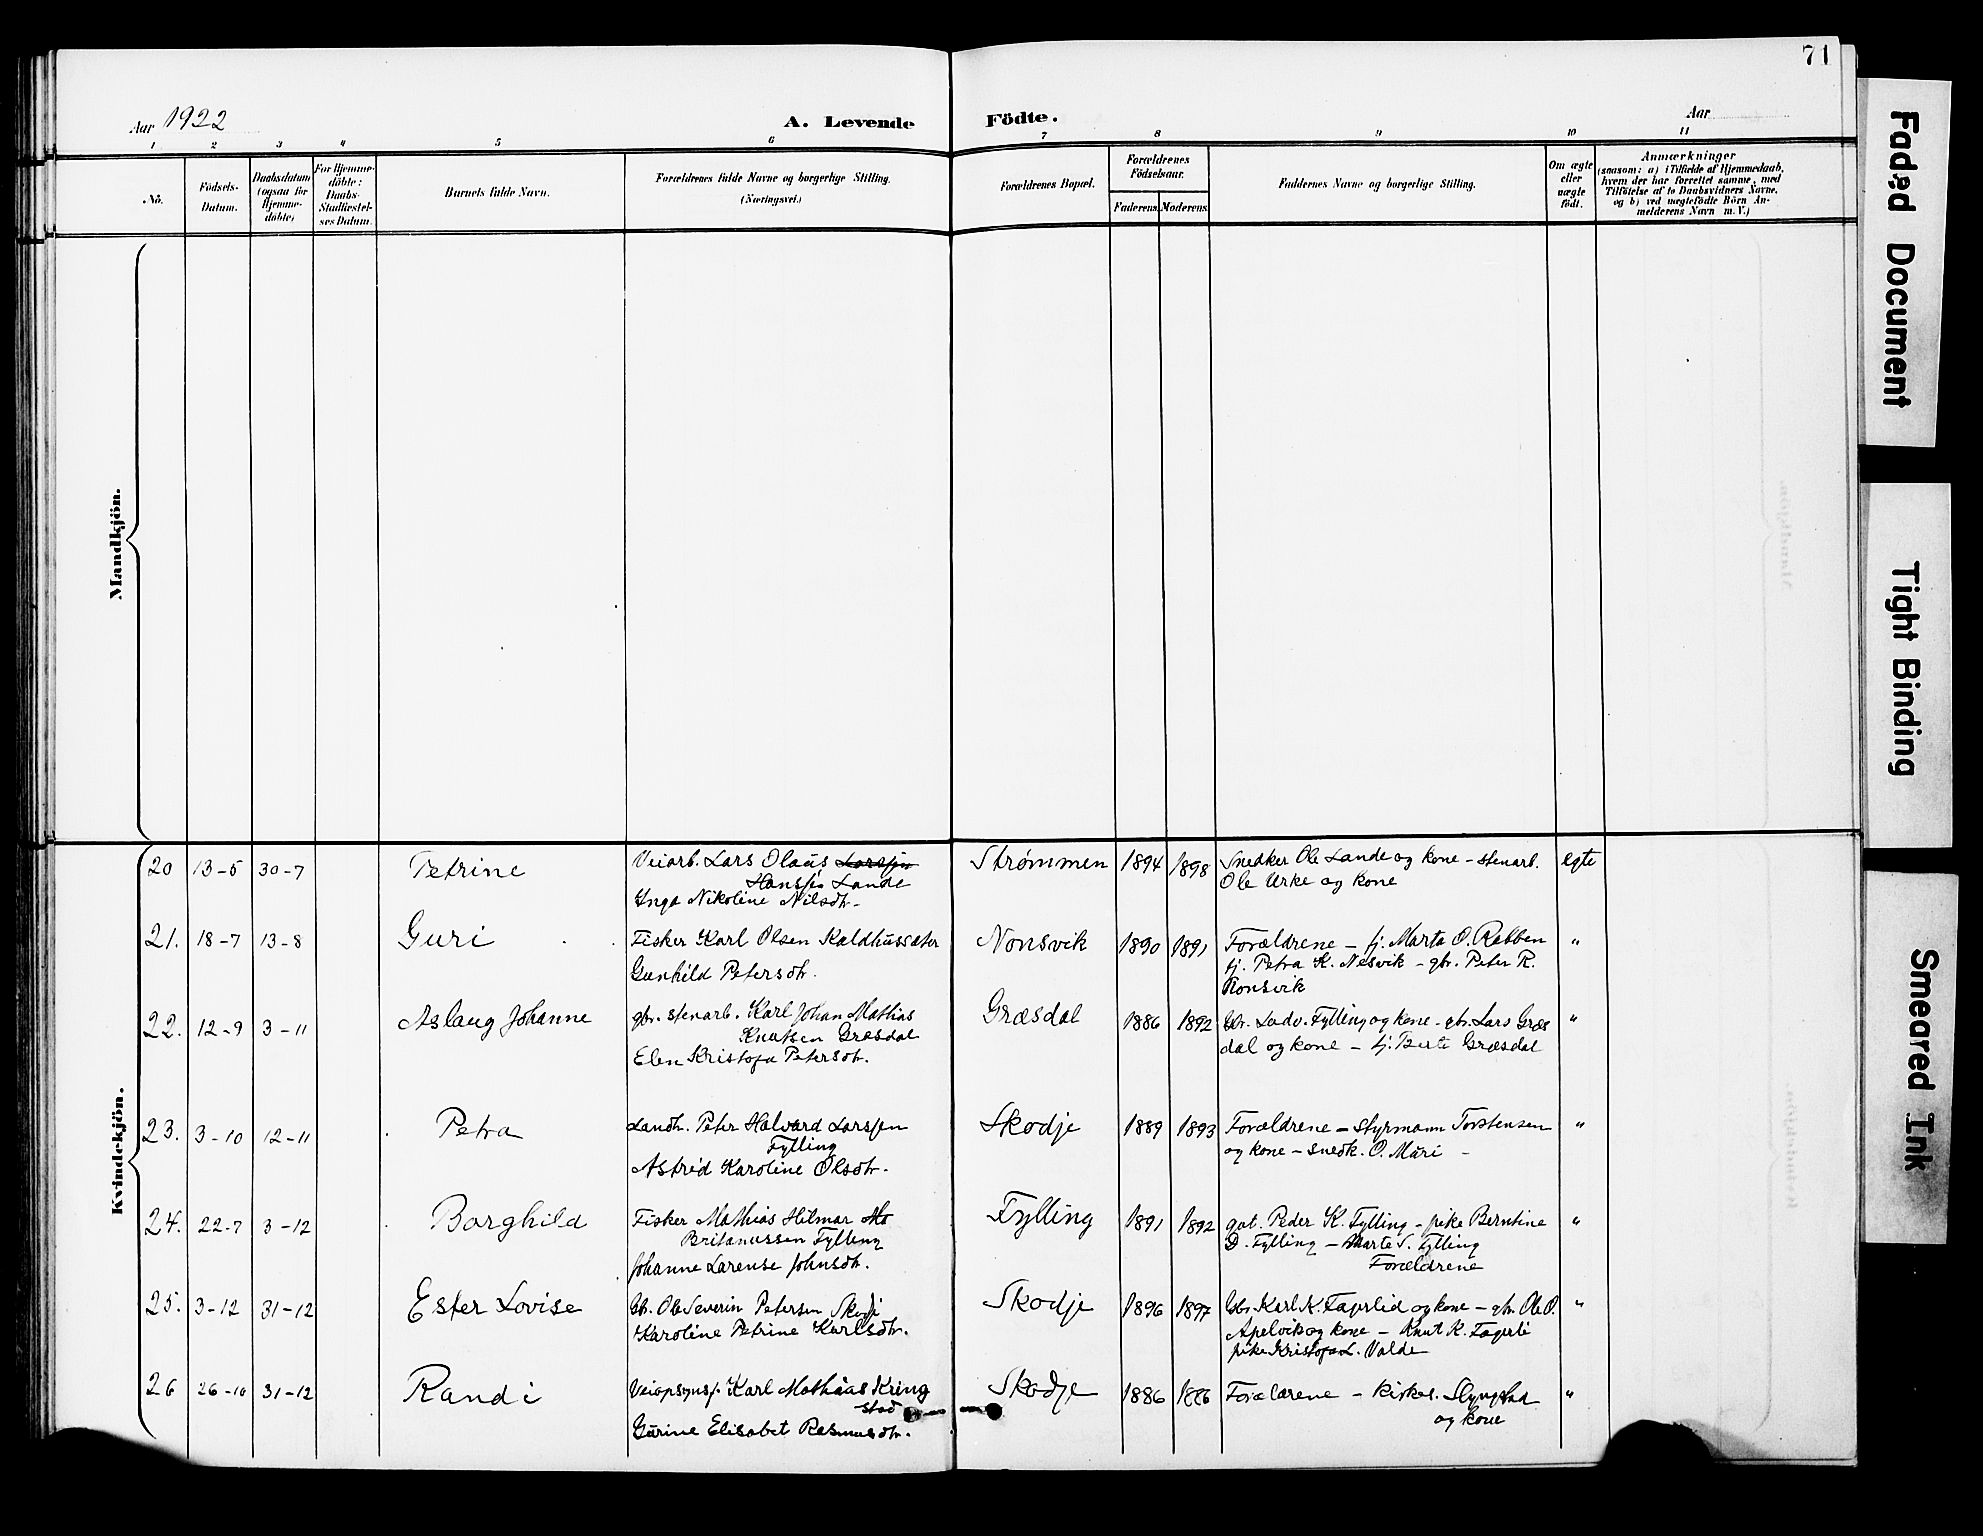 71
Aar 1922
A. Levende Födte.
Aar
1 2 3 4 5 6 7 8 9 10 11
No.
Födsels-Datum.
Daabsdatum (ogsaa för Hjemmedöbte)
For Hjemmedöbte: Daabs-Stadfæstelses Datum.
Barnets fulde Navn.
Forældrenes fulde Navne og borgerlige Stilling.
(Næringsvei.)
Forældrenes Bopæl.
Forældrenes Födselsaar.
Faderens. Moderens.
Faddernes Navne og borgerlige Stilling.
Om ægte eller uægte födt.
Anmærkninger
(saasom: a) i Tilfælde af Hjemmedaab,
hvem der har forrettet samme, med
Tilföielse af to Daabsvidners Navne,
og b) ved uægtefödte Börn Anmelderens Navn m. V.)
Mandkjön.
Kvindekjön.
20 13-5 30-7 Petrine Veiarb. Lars Olaus Larssen Strømmen 1894 1898 Snedker Ole Lande og kone - stenarb. egte
Hanssen Lande Ole Urke og kone
Inga Nikoline Nilsdtr.
21. 18-7 13-8 Guri Fisker Karl Olsen Kaldhussæter Nonsvik 1890 1891 Forældrene - fj. Marta O. Rabben "
Gunhild Petersdtr. fj. Petra K. Nesvik - gbr. Peter R.
Nonsvik
22. 12-9 3-11 Aslaug Johanne gbr. stenarb. Karl Johan Mathias Græsdal 1886 1892 Gbr. Ludv. Fylling og kone - gbr. Lars Græs "
Knutsen Græsdal dal og kone - fj. Berte Græsdal
Elen Kristofa Petersdtr.
23. 3-10 12-11 Petra Landh. Peter Halvard Larssen Skodje 1889 1893 Forældrene - Styrmann Torstensen "
Fylling og kone - snedk. O. Mari -
Astrid Karoline Olsdtr.
24. 22-7 3-12 Borghild Fisker Mathias Hilmar Fylling 1891 1892 Peder K. Fylling - pike Berntine "
Britanussen Fylling D. Fylling - Marte S. Fylling
Johanne Larense Johnsdtr. Forældrene
25. 3-12 31-12 Ester Lovise Gb. Ole Severin Petersen Skodje Skodje 1896 1897 Gbr. Karl K. Fagerlid og kone - gbr. Ole O. "
Karoline Petrine Karlsdtr. Apelvik og kone - Knut K. Fagerli
pike Kristofa L. Valde
26 26-10 31-12 Randi Veiopsynsf. Karl Mathias Kring Skodje 1886 1886 Forældrene - kirkes. Slyngstad "
stad og kone
Gurine Elisabet Rasmusdtr.
Faded Document
Tight Binding
Smeared Ink